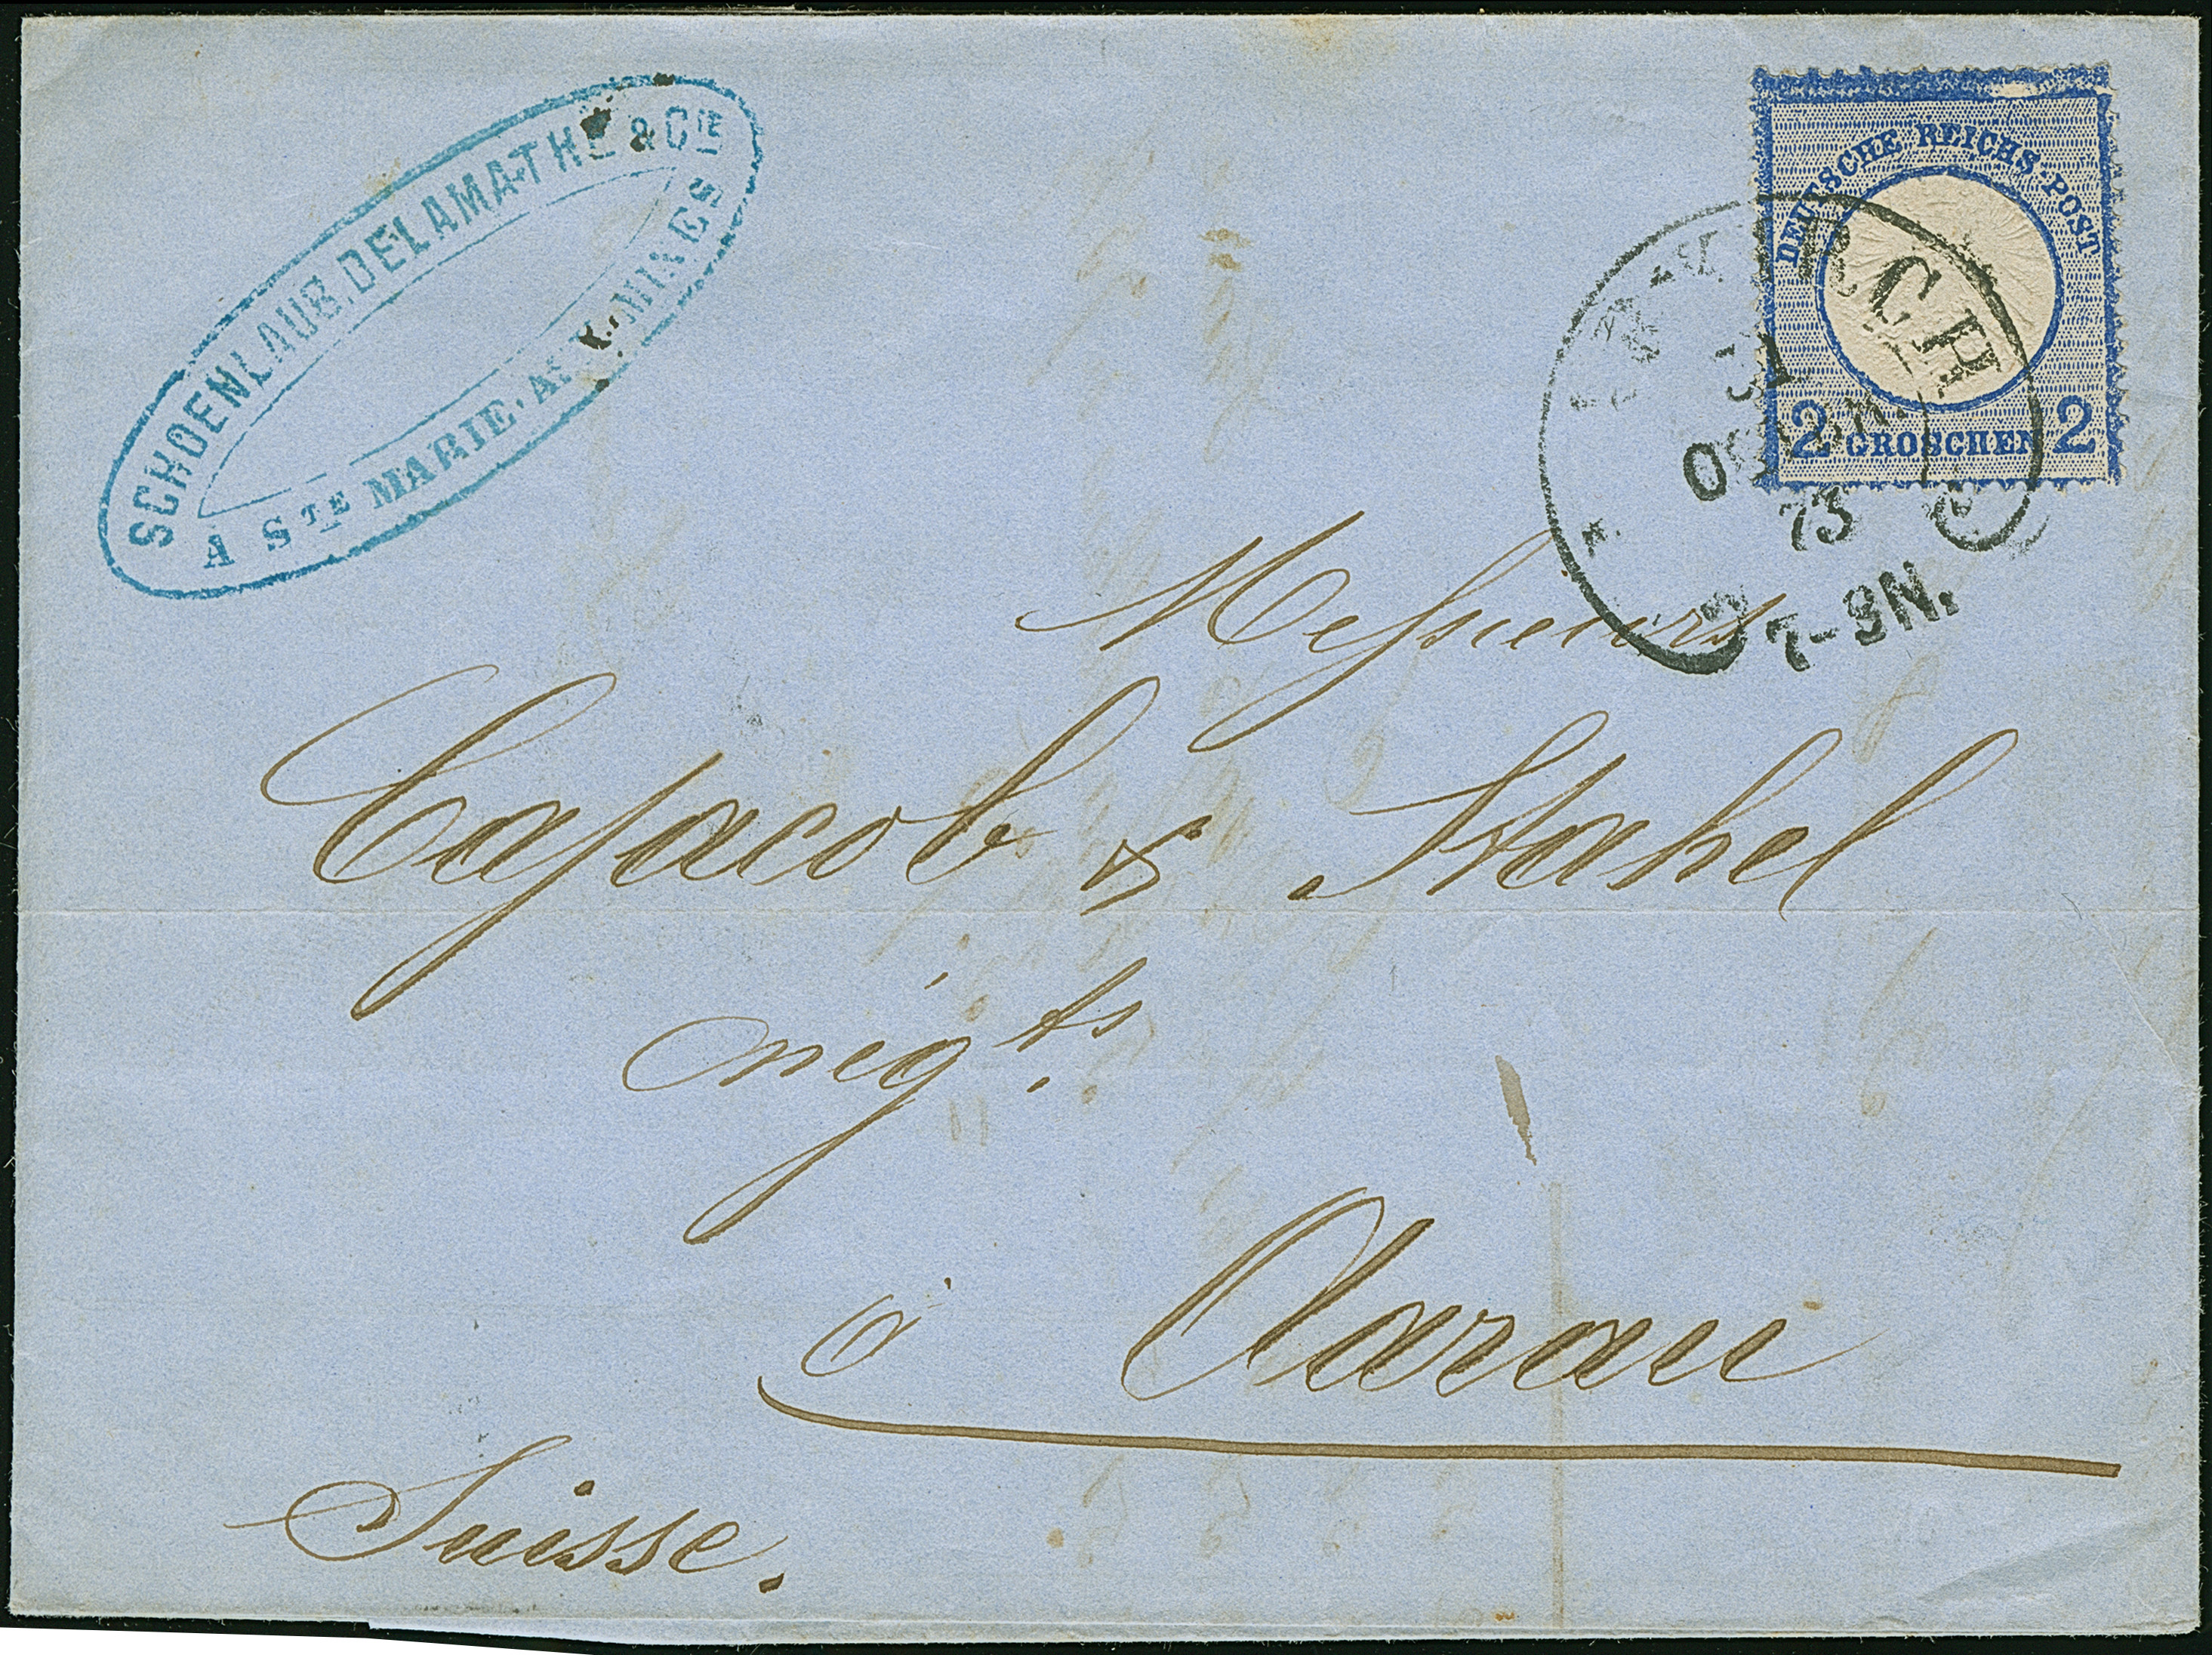 SCHOENLAUB, DELAMATHE & CIE
A STE MARIE-AUX-MINES
DEUTSCHE REICHS-POST
2 GROSCHEN 2
73
7-8N.
Messieurs
Cajacob & Stahel
négts.
à Aarau
Suisse.